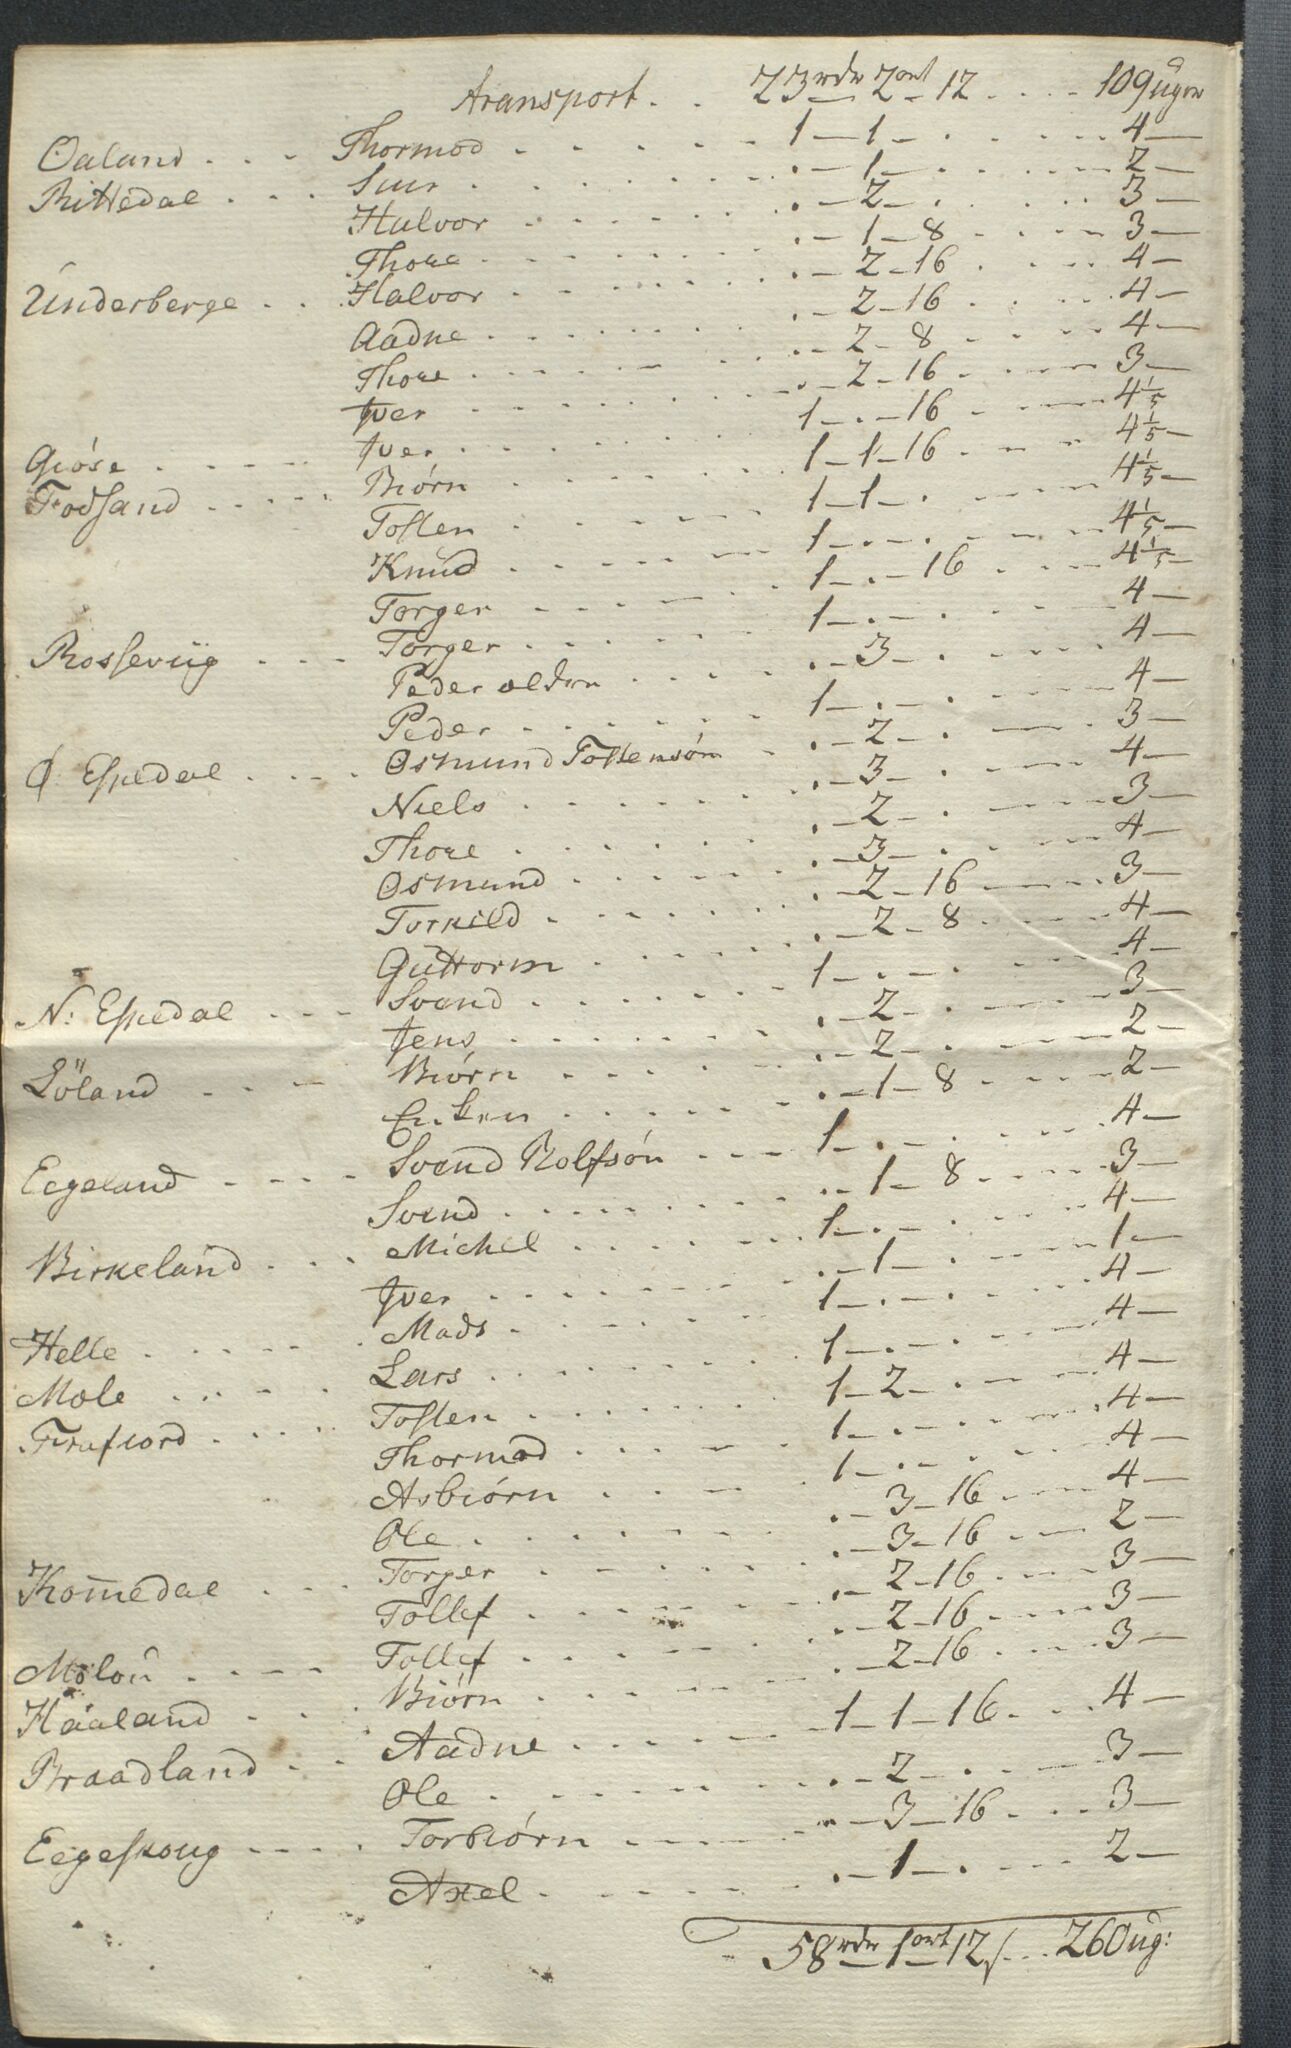 Transport . . 23 rdr 2 ort 12 . . . . 109 ugər
Oaland . . . Thormod . . . . . . 1 – 1 – . . . . . 4 –
Rittedal . . . Siur . . . . . . . – 1 – . . . . . 2 –
Halvor . . . . . . . – 2 – . . . . . 3 –
Thore . . . . . . . – 1 – 8 . . . . 3 –
Underberge . . Halvor . . . . . . . – 2 – 16 . . . . 4 –
Aadne . . . . . . . – 2 – 16 . . . . 4 –
Thore . . . . . . . – 2 – 8 . . . . 4 –
Iver . . . . . . . – 2 – 16 . . . . 3 –
Giöse . . . . Iver . . . . . . 1 – . – 16 . . . . 4 1/5
Fodsand . . . . Biörn . . . . . . 1 – 1 – 16 . . . 4 1/5 –
Tosten . . . . . . 1 – 1 – . . . . 4 1/5 –
Knud . . . . . . 1 – . – . . . . 4 1/5 –
Torger . . . . . . 1 – . – 16 . . . . 4 1/5 –
Rosseviig . . . Torger . . . . . . 1 – . – . . . . . 4 –
Peder eldre . . . . . – 3 – . . . . 4 –
Peder . . . . . . 1 – . – . . . . 4 –
Ö Espedal . . . . Osmund Tostensön . . – 2 – . . . . 3 –
Niels . . . . . . . – 3 – . . . . 4 –
Thore . . . . . . . – 2 – . . . . 3 –
Osmund . . . . . . – 3 – . . . . 4 –
Torkild . . . . . . – 2 – 16 . . . . 3 –
Guttorm . . . . . . – 2 – 8 . . . . 4 –
N: Espedal . . . Svend . . . . . . 1 – . – . . . . 4 –
Jens . . . . . . . – 2 – . . . . 3 –
Löland . . . Biörn . . . . . . – 2 – . . . . 2 –
Enken . . . . . . – 1 – 8 . . . . 2 –
Eegeland . . . . Svend Rolfsön . . . 1 – . – . . . . 4 –
Svend . . . . . . . – 1 – 8 . . . . 3 –
Birkeland . . . Michel . . . . . . 1 – . – . . . . 4 –
Iver . . . . . . . – 1 – . . . . 1 –
Helle . . . . . Mads . . . . . . 1 – . – . . . . 4 –
Mæle . . . . Lars . . . . . . 1 – . – . . . . 4 –
Frafiord . . . . Tosten . . . . . . 1 – 2 – . . . . 4 –
Thormod . . . . . 1 – . – . . . . 4 –
Asbiörn . . . . . 1 – . – . . . . 4 –
Ole . . . . . . . – 3 – 16 . . . . 4 –
Komedal . . . Torger . . . . . . – 3 – 16 . . . . 2 –
Tollef . . . . . . – 2 – 16 . . . . 3 –
Tollef . . . . . . – 2 – 16 . . . . 3 –
Molou . . . . Biörn . . . . . . – 2 – 16 . . . . 3 –
Haaland . . . . Aadne . . . . . . 1 – 1 – 16 . . . . 4 –
Braadland . . . Ole . . . . . . . – 2 – . . . . 3 –
Eegeskoug . . . . Torbiörn . . . . . – 3 – 16 . . . 3 –
Axel . . . . . . . – 1 – . . . . 2 –
58 rdr 1 ort 12 s . . . 260 ug: